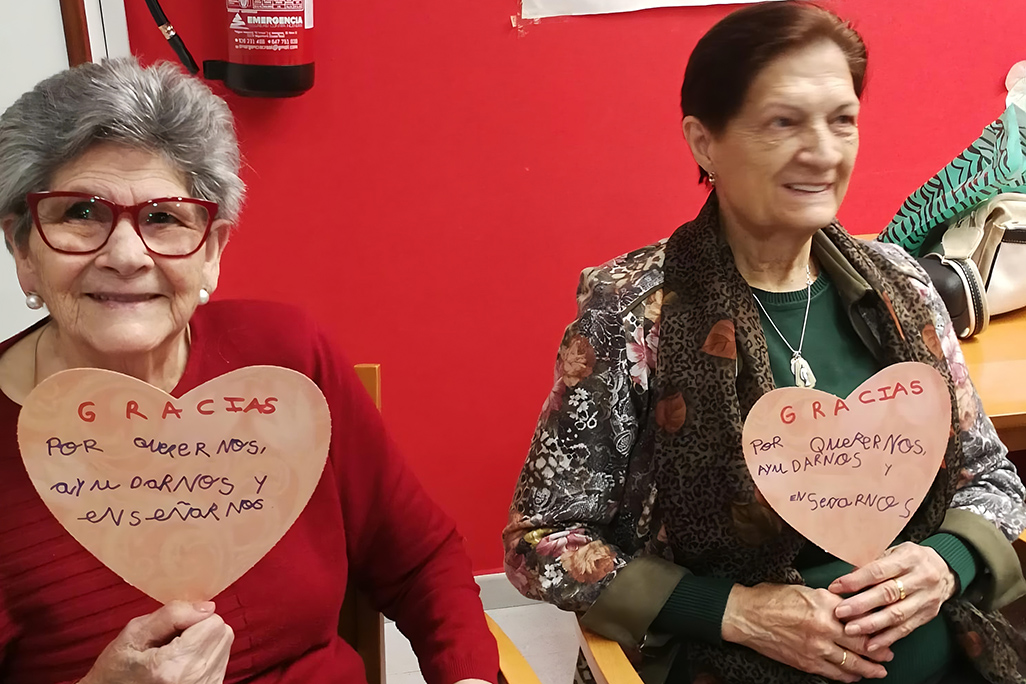 EMERGENCIA
GRACIAS
POR QUERERNOS,
AYUDARNOS Y
ENSEÑARNOS
GRACIAS
POR QUERERNOS,
AYUDARNOS Y
ENSEÑARNOS